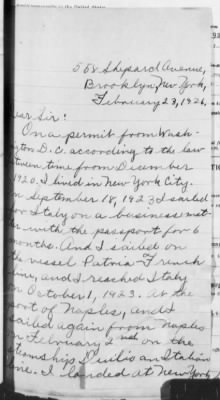 558 Shepard Avenue,
Brooklyn, New York,
February 23, 1926.
ear Sir:
On a permit from Wash-
gton D.C. according to the law
tween time from December
1920. I lived in New York City.
n September 18, 1923 I sailed
or Italy on a business mat-
er with the passport for 6
months. And I sailed on
the vessel Patria French
Line, and I reached Italy
n October 1, 1923. At the
port of Naples, and I
sailed again from Naples
n February 2nd on the
teamship Duilio an Italian
Line. I landed at New York